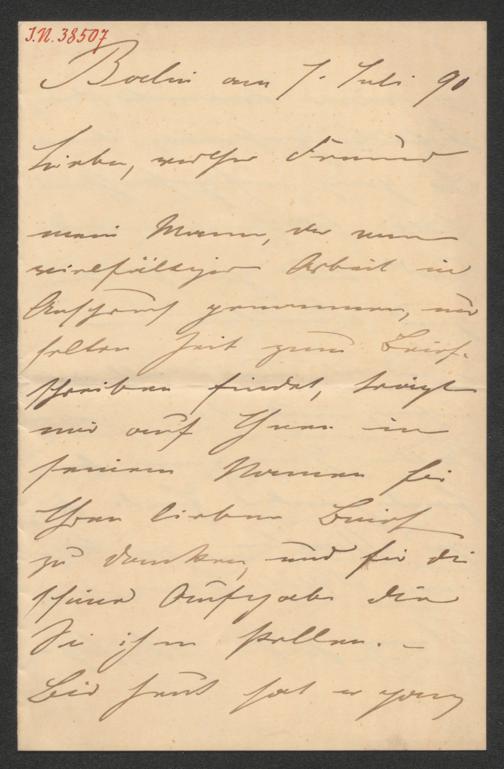 I.N. 38507
Berlin am 7. Juli 90
Lieber, werther Freund
mein Mann, der von
vielfältiger Arbeit in
Anspruch genommen, nur
selten Zeit zum Brief-
schreiben findet, trägt
mir auf Ihnen in
seinem Namen für
Ihren lieben Brief
zu danken, und für die
schöne Aufgabe die
Sie ihm stellen. –
Bis heut hat er ganz